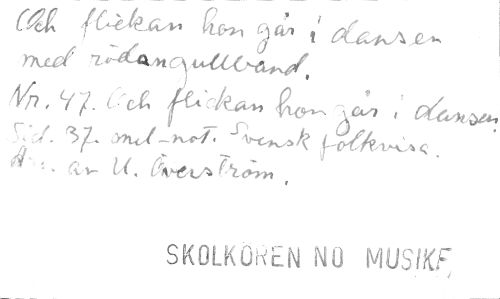 Och flickan hon går i dansen
med rödangullband.
Nr. 47. Och flickan hon går i dansen.
Sid. 37. mel-not. Svensk folkvisa.
av U. Överström.
SKOLKÖREN NO MUSIKF